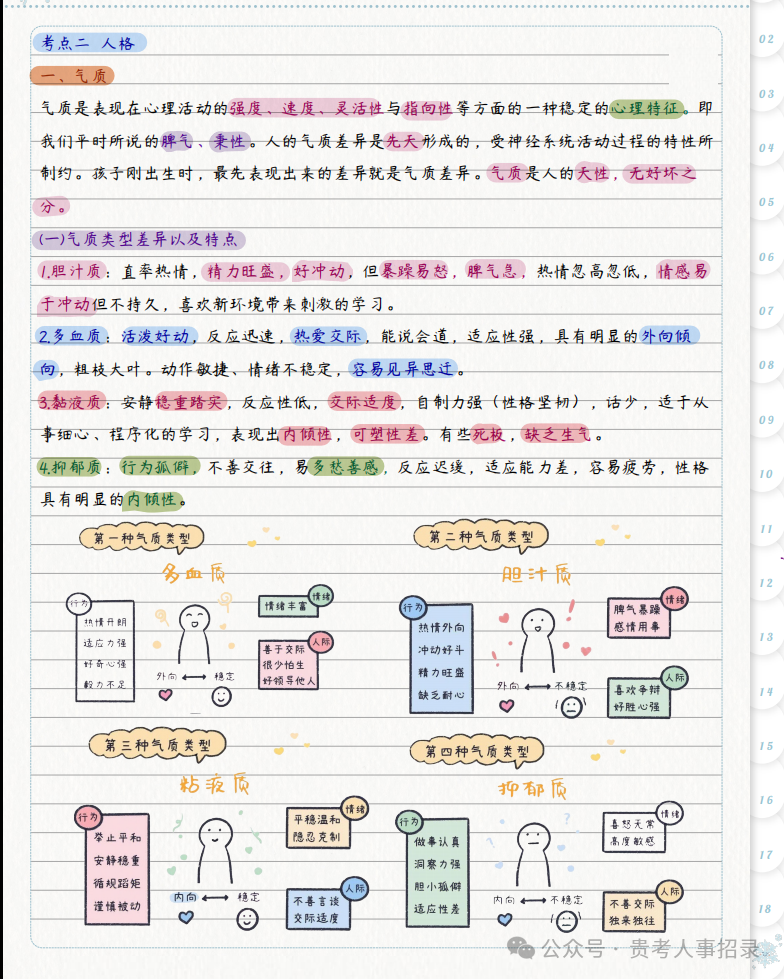 考点二 人格
一、气质
气质是表现在心理活动的强度、速度、灵活性与指向性等方面的一种稳定的心理特征。即
我们平时所说的脾气、秉性。人的气质差异是先天形成的，受神经系统活动过程的特性所
制约。孩子刚出生时，最先表现出来的差异就是气质差异。气质是人的天性，无好坏之
分。
(一)气质类型差异以及特点
1.胆汁质：直率热情，精力旺盛，好冲动，但暴躁易怒，脾气急，热情忽高忽低，情感易
于冲动但不持久，喜欢新环境带来刺激的学习。
2.多血质：活泼好动，反应迅速，热爱交际，能说会道，适应性强，具有明显的外向倾
向，粗枝大叶。动作敏捷、情绪不稳定，容易见异思迁。
3.黏液质：安静稳重踏实，反应性低，交际适度，自制力强（性格坚韧），话少，适于从
事细心、程序化的学习，表现出内倾性，可塑性差。有些死板，缺乏生气。
4.抑郁质：行为孤僻，不善交往，易多愁善感，反应迟缓，适应能力差，容易疲劳，性格
具有明显的内倾性。
第一种气质类型
多血质
行为
热情开朗
适应力强
好奇心强
毅力不足
外向
稳定
情绪
情绪丰富
人际
善于交际
很少怕生
好领导他人
第二种气质类型
胆汁质
行为
热情外向
冲动好斗
精力旺盛
缺乏耐心
外向
不稳定
情绪
脾气暴躁
感情用事
人际
喜欢争辩
好胜心强
第三种气质类型
粘液质
行为
举止平和
安静稳重
循规蹈矩
谨慎被动
内向
稳定
情绪
平稳温和
隐忍克制
人际
不善言谈
交际适度
第四种气质类型
抑郁质
行为
做事认真
洞察力强
胆小孤僻
适应性差
内向
不稳定
情绪
喜怒无常
高度敏感
人际
不善交际
独来独往
02
03
04
05
06
07
08
09
10
11
12
13
14
15
16
17
18
公众号 · 贵考人事招录